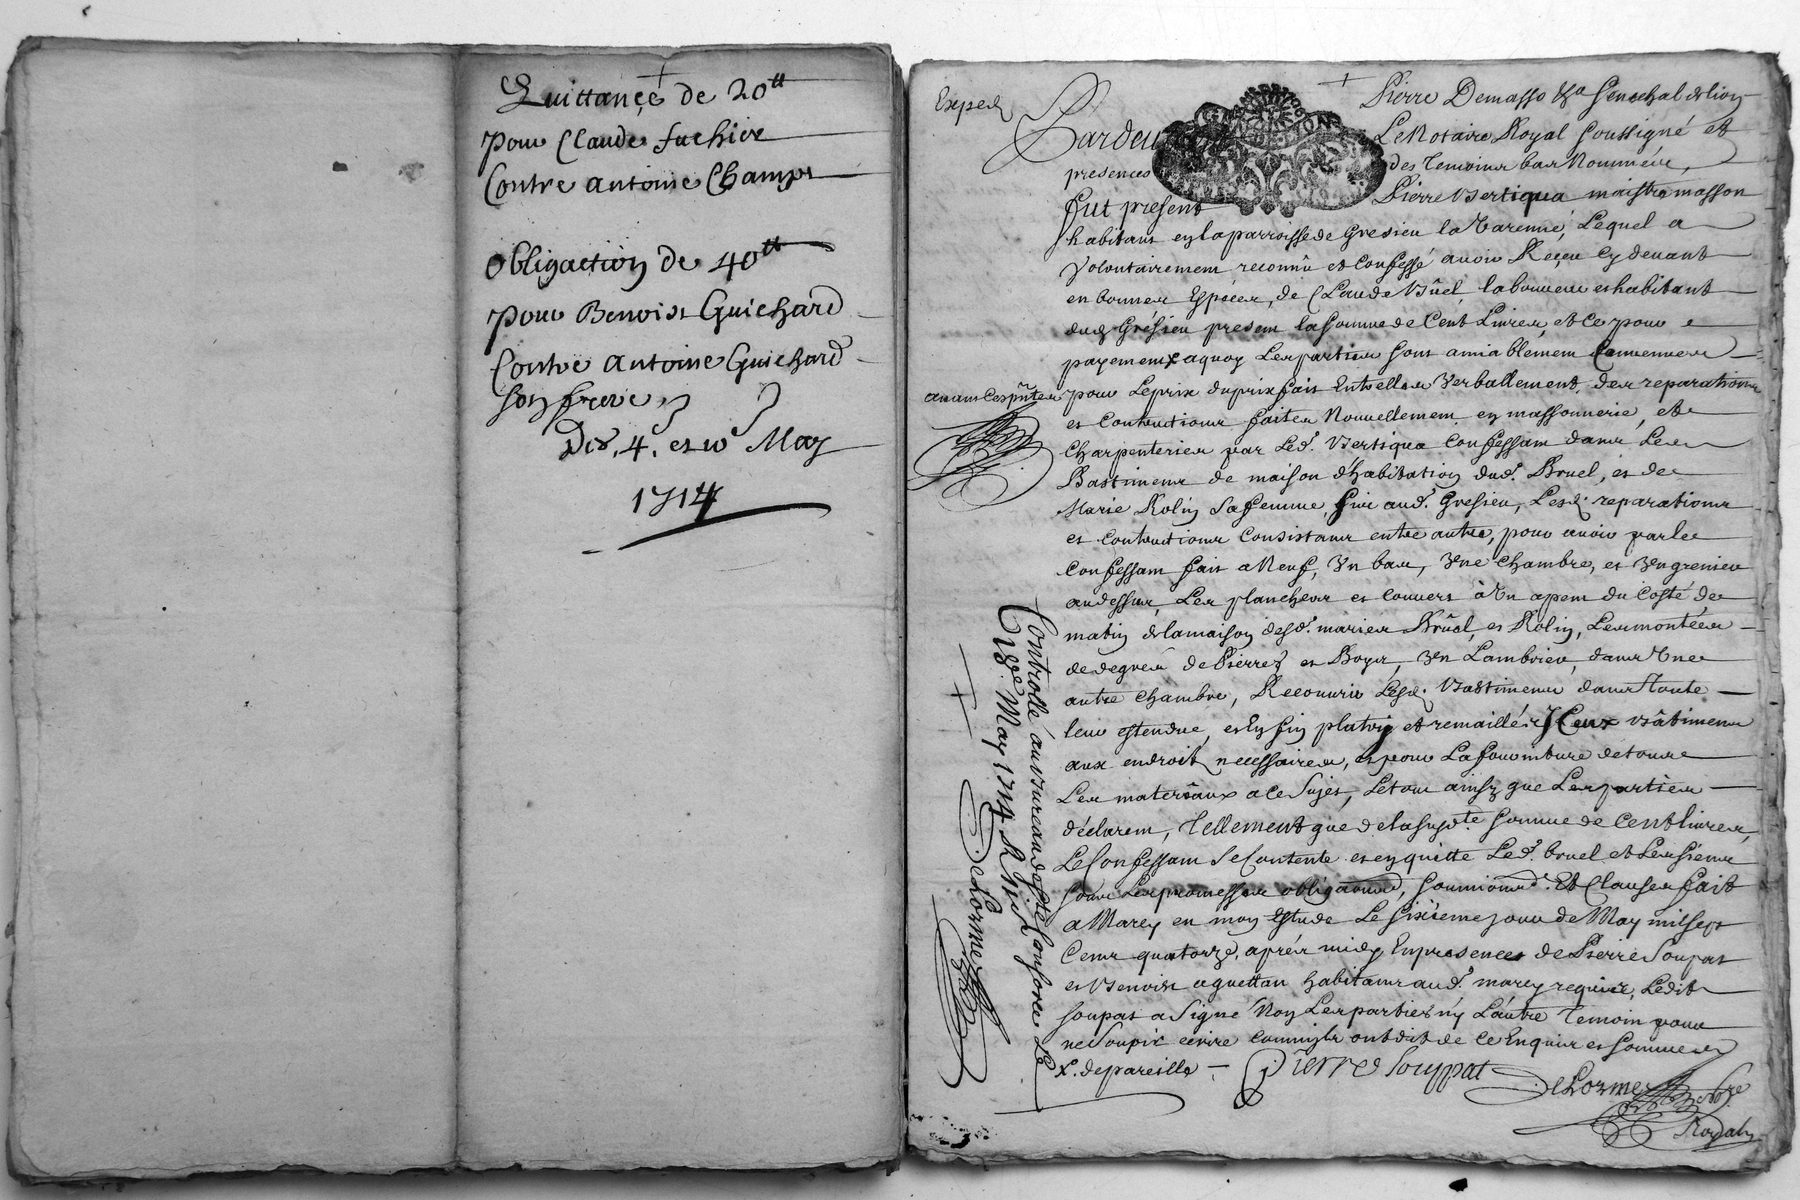 Quittance de 20tt
pour Claude fuchier
Contre antoine Champt
obligaction de 40tt
pour Benoist Guichard
Contre antoine Guichard
son frere
Des. 4. et 10e May
1714
Exped
Pardeuant
Pierre Demasso &a Senechal de lion
Le Notaire Royal soussigné et
presences
des temoins bas Nommés,
fut present
Pierre Vertiqua maistre masson
habitant en la parroisse de Gresieu la Varenne, Lequel a
volontairement reconnû et confessé auoir Receu cy deuant
en bonnes Especes, de Claude Brûel, laboureur et habitant
dud Grésieu present la somme de Cent Liures, et ce pour
payement aquoy Les parties sont amiablement Conuenues
auant ces pntes
pour Le prix du prix fait Entrelles Verballement, des reparations
et contructions faites Nouuellement en massonnerie, et
charpenteries par Led. Vertiqua Confessant dans Les
Bastiments de maison dhabitation dud. Bruel, et de
Marie Rolin sa femme, sise aud. Gresieu, Lesd. reparations
et contructions Consistants entre autre, pour auoir par le
Confessant fait a Neuf, Vn bas, Vne chambre, et Vn grenier
audessus, Les planchers et couuert à Vn apent du Costé de
matin de la maison desd. maries Brûel, et Rolin, Les montées
de degrés de Pierres et Boys, Vn Lambrier, dans Vne
autre chambre, Recouurir Lesd. Bastiments dans toute
leur estendue, et En fin platry et remaillé Iceux bâtiments
aux endroit necessaires, et pour La fourniture de tous
Les materiaux a ce Sujet, Le tout ainsy que Les parties
déclarent, Tellement que de la susdte somme de Cent liures,
Le Confessant se Contente et en quitte Led. bruel et Les siens
sous Les promesses obligaons, soumions. Et Clauses fait
a Marcy en mon Estude Le sixieme jour de May mil sept
Cents quatorze, aprés midy En presences de Pierre Soupat
et Benoist aguettan habitants aud. marcy requis, Ledit
soupat a Signé Non Les parties ny L'autre Temoin pour
ne sçauoir ecrire comme ils ont dit de ce Enquis et sommes
x. de pareille
Pierre Souppat
Delorme
Nore
Royal
Controllé au bureau de Ste Consorce Le
18e. May 1714 R huit s
Delorme